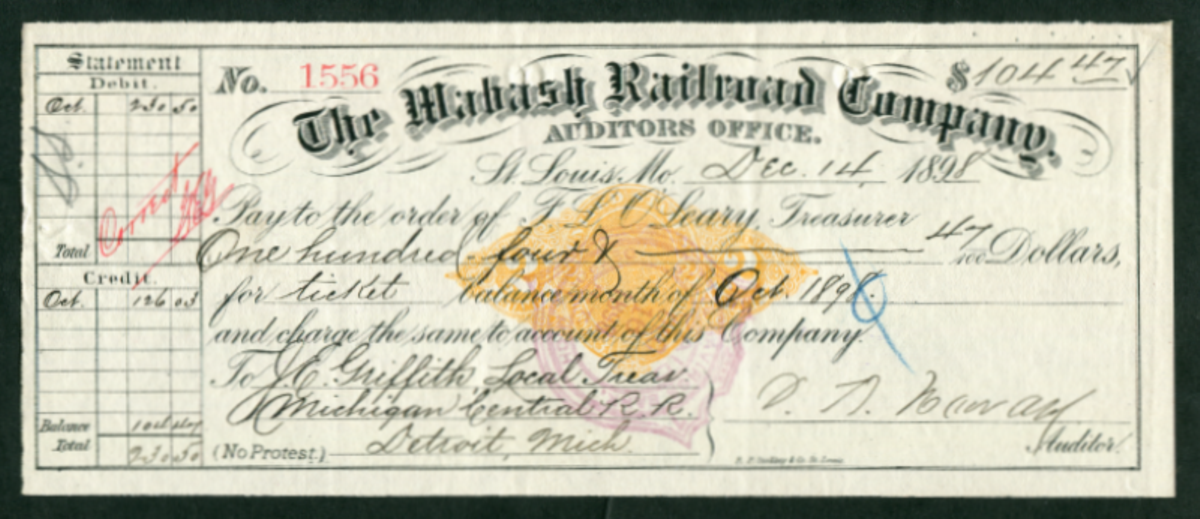 Statement
Debit.
Oct. 230 50
Correct
Total
Credit.
Oct. 126 03
Balance 104 47
Total 230 50
No. 1556
$104 47
The Wabash Railroad Company.
AUDITORS OFFICE.
St. Louis, Mo. Dec. 14, 1898
Pay to the order of F L O'Leary, Treasurer
One hundred four & 47/100 Dollars,
for ticket balance month of Oct. 1898.
and charge the same to account of this Company.
To J. E. Griffith, Local Treas
Michigan Central R. R.
Detroit, Mich
(No Protest.)
Auditor.